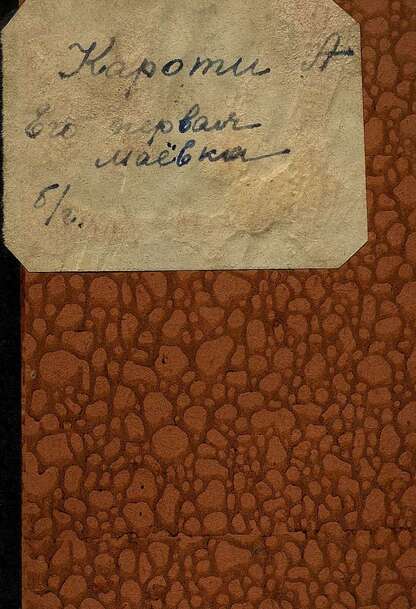 Кароти А
Его первая
маёвка
б/г.